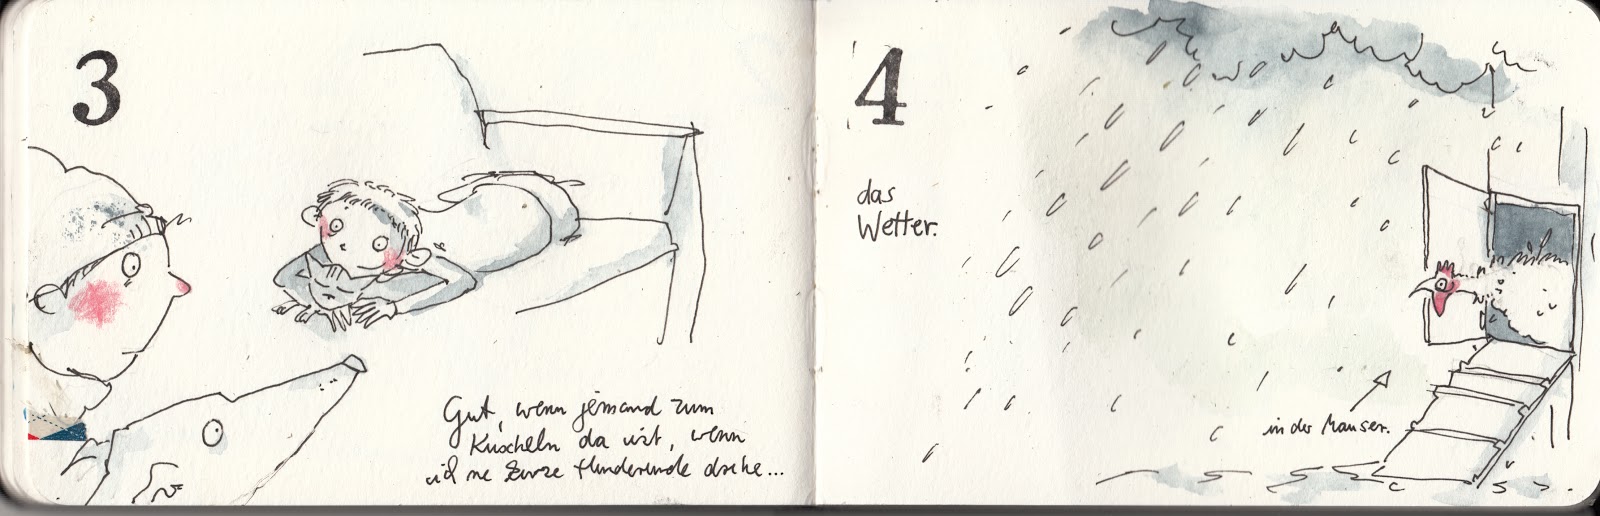 3
Gut, wenn jemand zum
Kuscheln da ist, wenn
ich ne kurze Hunderunde drehe...
4
das
Wetter.
in der Mauser.